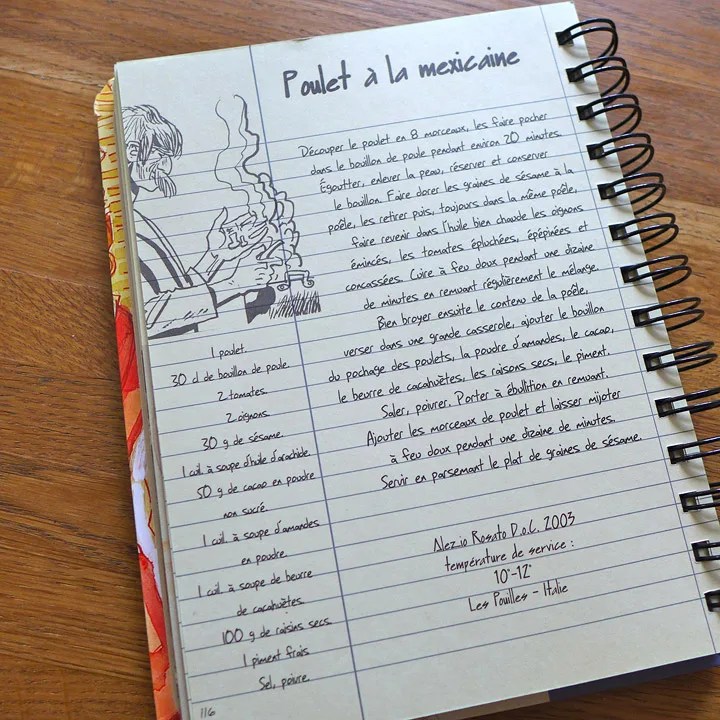 Poulet à la mexicaine
Découper le poulet en 8 morceaux, les faire pocher
dans le bouillon de poule pendant environ 20 minutes.
Égoutter, enlever la peau, réserver et conserver
le bouillon. Faire dorer les graines de sésame à la
poêle, les retirer puis, toujours dans la même poêle,
faire revenir dans l'huile bien chaude les oignons
émincés, les tomates épluchées, épépinées et
concassées. Cuire à feu doux pendant une dizaine
de minutes en remuant régulièrement le mélange.
Bien broyer ensuite le contenu de la poêle,
verser dans une grande casserole, ajouter le bouillon
du pochage des poulets, la poudre d'amandes, le cacao,
le beurre de cacahuètes, les raisins secs, le piment.
Saler, poivrer. Porter à ébullition en remuant.
Ajouter les morceaux de poulet et laisser mijoter
à feu doux pendant une dizaine de minutes.
Servir en parsemant le plat de graines de sésame.
Alezio Rosato D.o.C. 2003
température de service :
10°-12°
Les Pouilles - Italie
1 poulet.
30 cl de bouillon de poule.
2 tomates.
2 oignons.
30 g de sésame.
1 cuil. à soupe d'huile d'arachide.
50 g de cacao en poudre
non sucré.
1 cuil. à soupe d'amandes
en poudre.
1 cuil. à soupe de beurre
de cacahuètes.
100 g de raisins secs.
1 piment frais.
Sel, poivre.
116